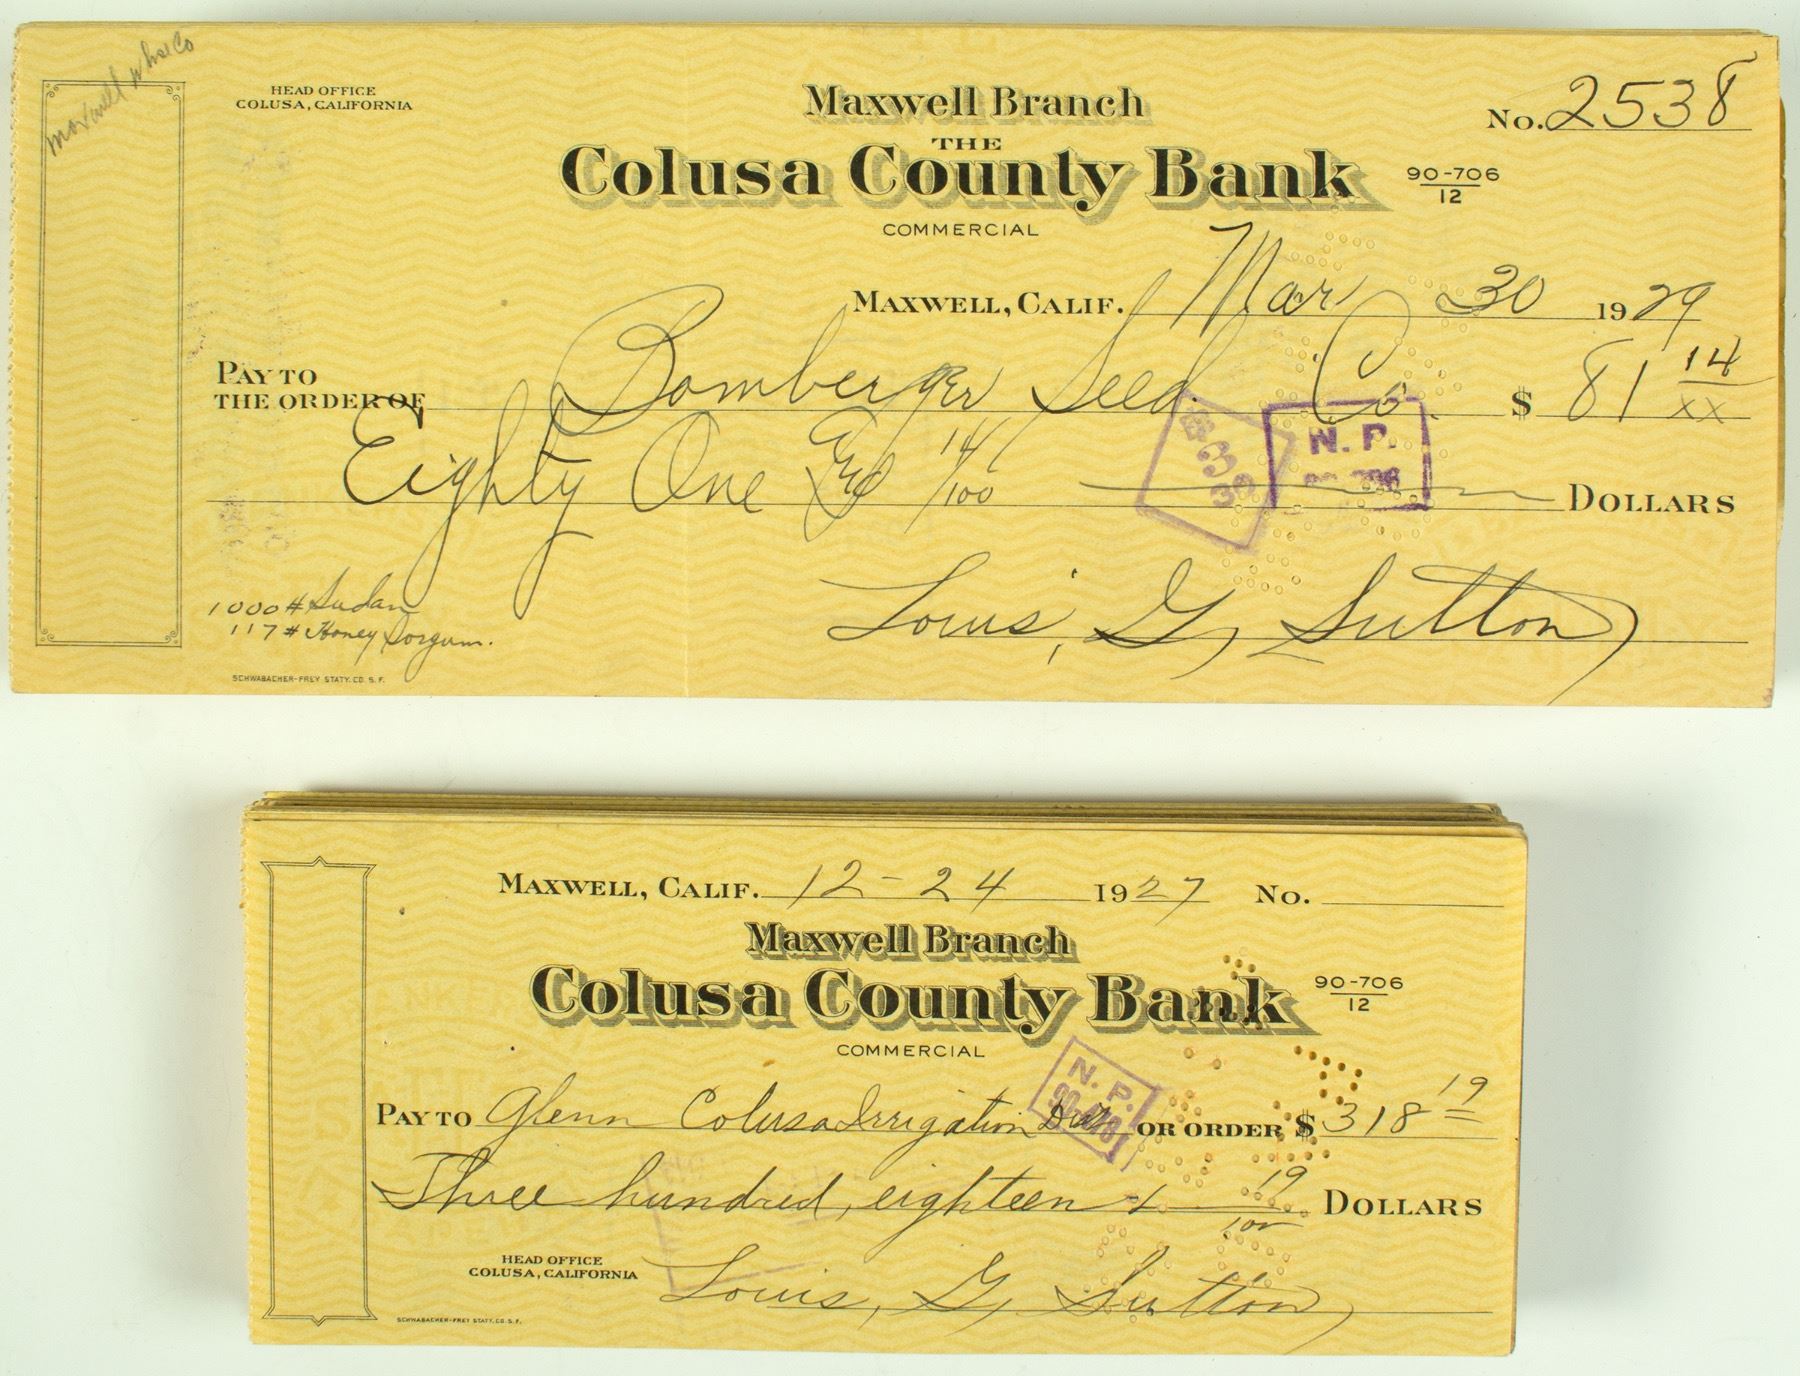 Maxwell Whse Co
HEAD OFFICE
COLUSA, CALIFORNIA
Maxwell Branch
THE
Colusa County Bank
COMMERCIAL
No. 2538
90-706
12
MAXWELL, CALIF. Mar 30 1929
PAY TO
THE ORDER OF Bomberger Seed Co. $ 81 14/xx
Eighty One And 14/100 DOLLARS
N. P.
1000 # Sudan
117 # Honey Sorgum.
Louis, G, Sutton
SCHWABACHER-FREY STATY. CO. S. F.
MAXWELL, CALIF. 12-24 1927 No.
Maxwell Branch
Colusa County Bank
COMMERCIAL
90-706
12
N. P.
PAY TO Glenn Colusa Irrigation OR ORDER $ 318 19
Three hundred, eighteen + 19/100 DOLLARS
HEAD OFFICE
COLUSA, CALIFORNIA
Louis, G, Sutton
SCHWABACHER-FREY STATY. CO. S. F.